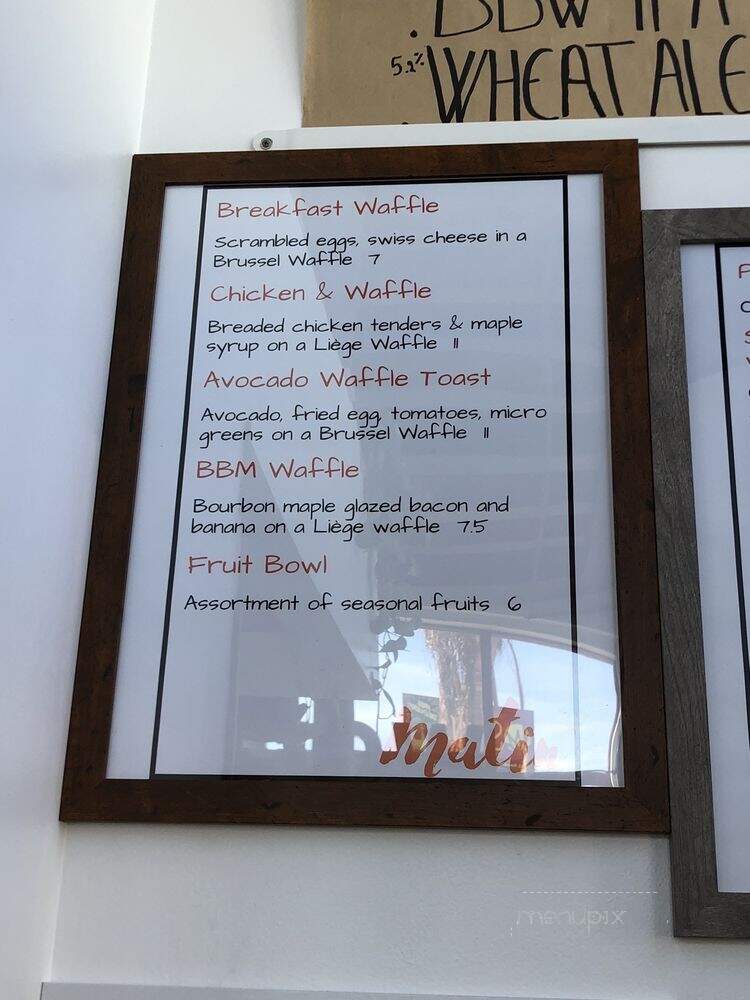 5.2%
WHEAT ALE
Breakfast Waffle
Scrambled eggs, swiss cheese in a
Brussel Waffle 7
Chicken & Waffle
Breaded chicken tenders & maple
syrup on a Liège Waffle 11
Avocado Waffle Toast
Avocado, fried egg, tomatoes, micro
greens on a Brussel Waffle 11
BBM Waffle
Bourbon maple glazed bacon and
banana on a Liège waffle 7.5
Fruit Bowl
Assortment of seasonal fruits 6
menupix